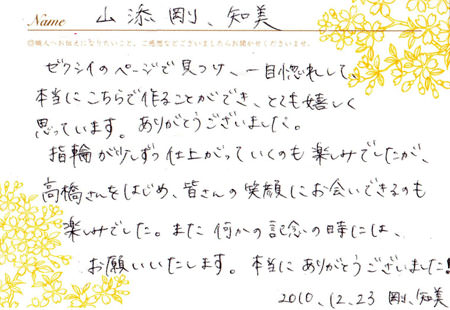 Name 山添 剛、知美
ゼクシイのページで見つけ、一目惚れして、
本当にこちらで作ることができ、とても嬉しく
思っています。ありがとうございました。
指輪が少しずつ仕上がっていくのも楽しみでしたが、
高橋さんをはじめ、皆さんの笑顔にお会いできるのも
楽しみでした。また何かの記念の時には、
お願いいたします。本当にありがとうございました!
2010、12、23 剛、知美